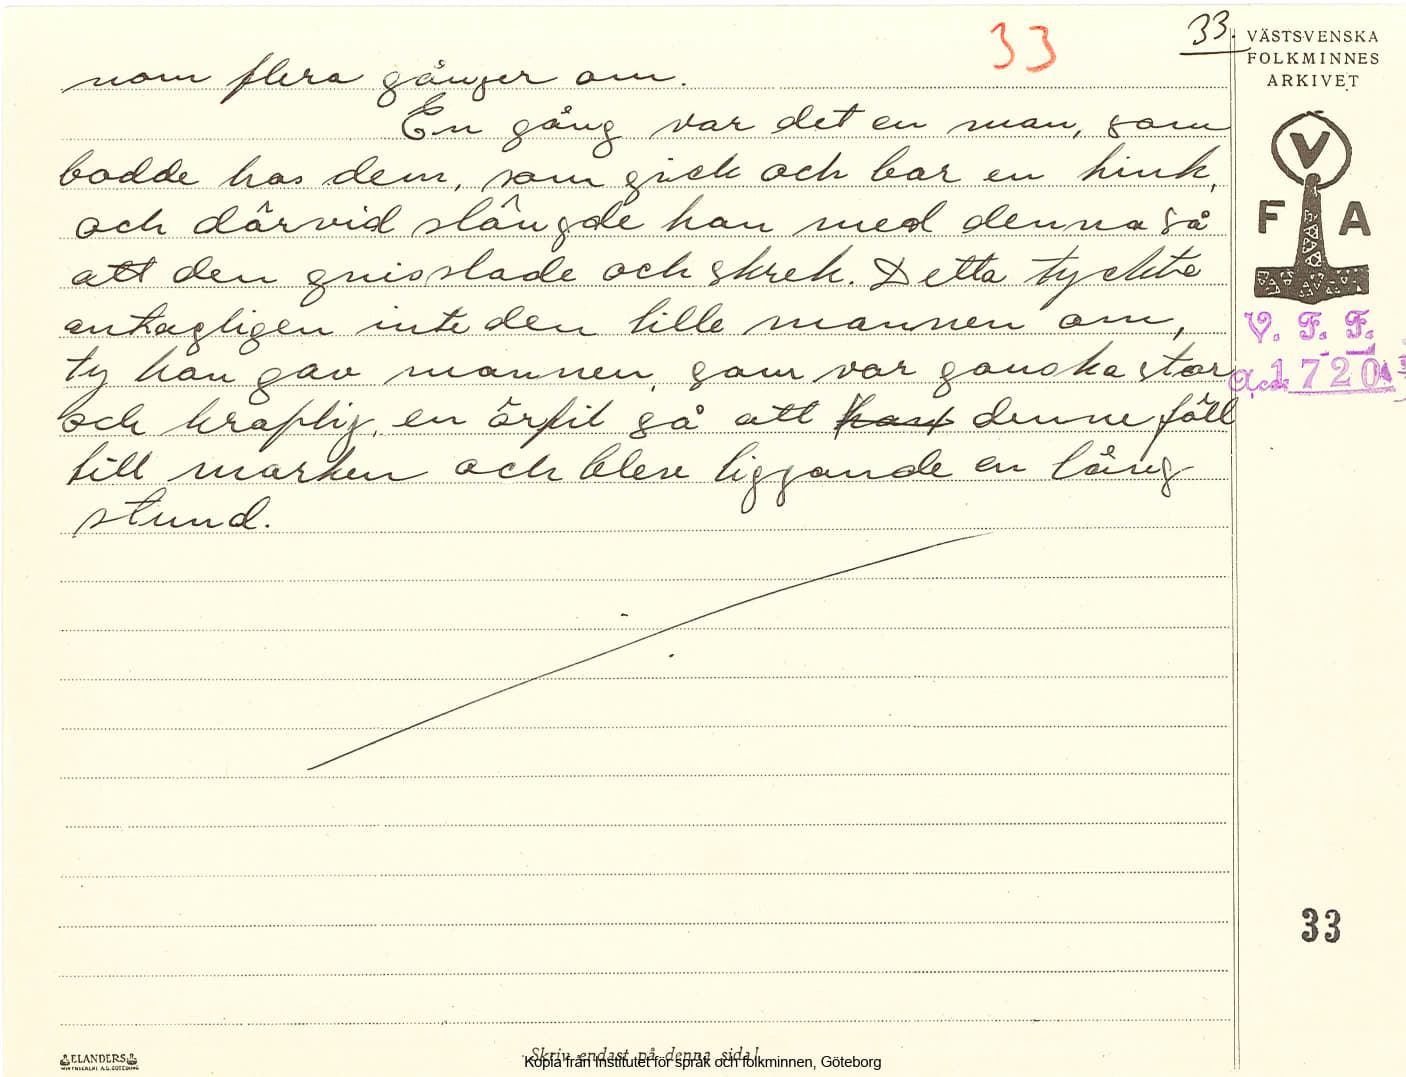 33
33.
VÄSTSVENSKA
FOLKMINNES
ARKIVET
nom flera gånger om.
En gång var det en man, som
bodde hos dem, som gick och bar en hink,
och därvid slängde han med denna så
att den gnisslade och skrek. Detta tyckte
antagligen inte den lille mannen om,
ty han gav mannen, som var ganska stor
och kraftig, en örfil så att han denne föll
till marken och blev liggande en lång
stund.
V
F A
V. F. F.
Acc. 1720
33
ELANDERS
Skriv endast på denna sida!
Kopia från Institutet för språk och folkminnen, Göteborg